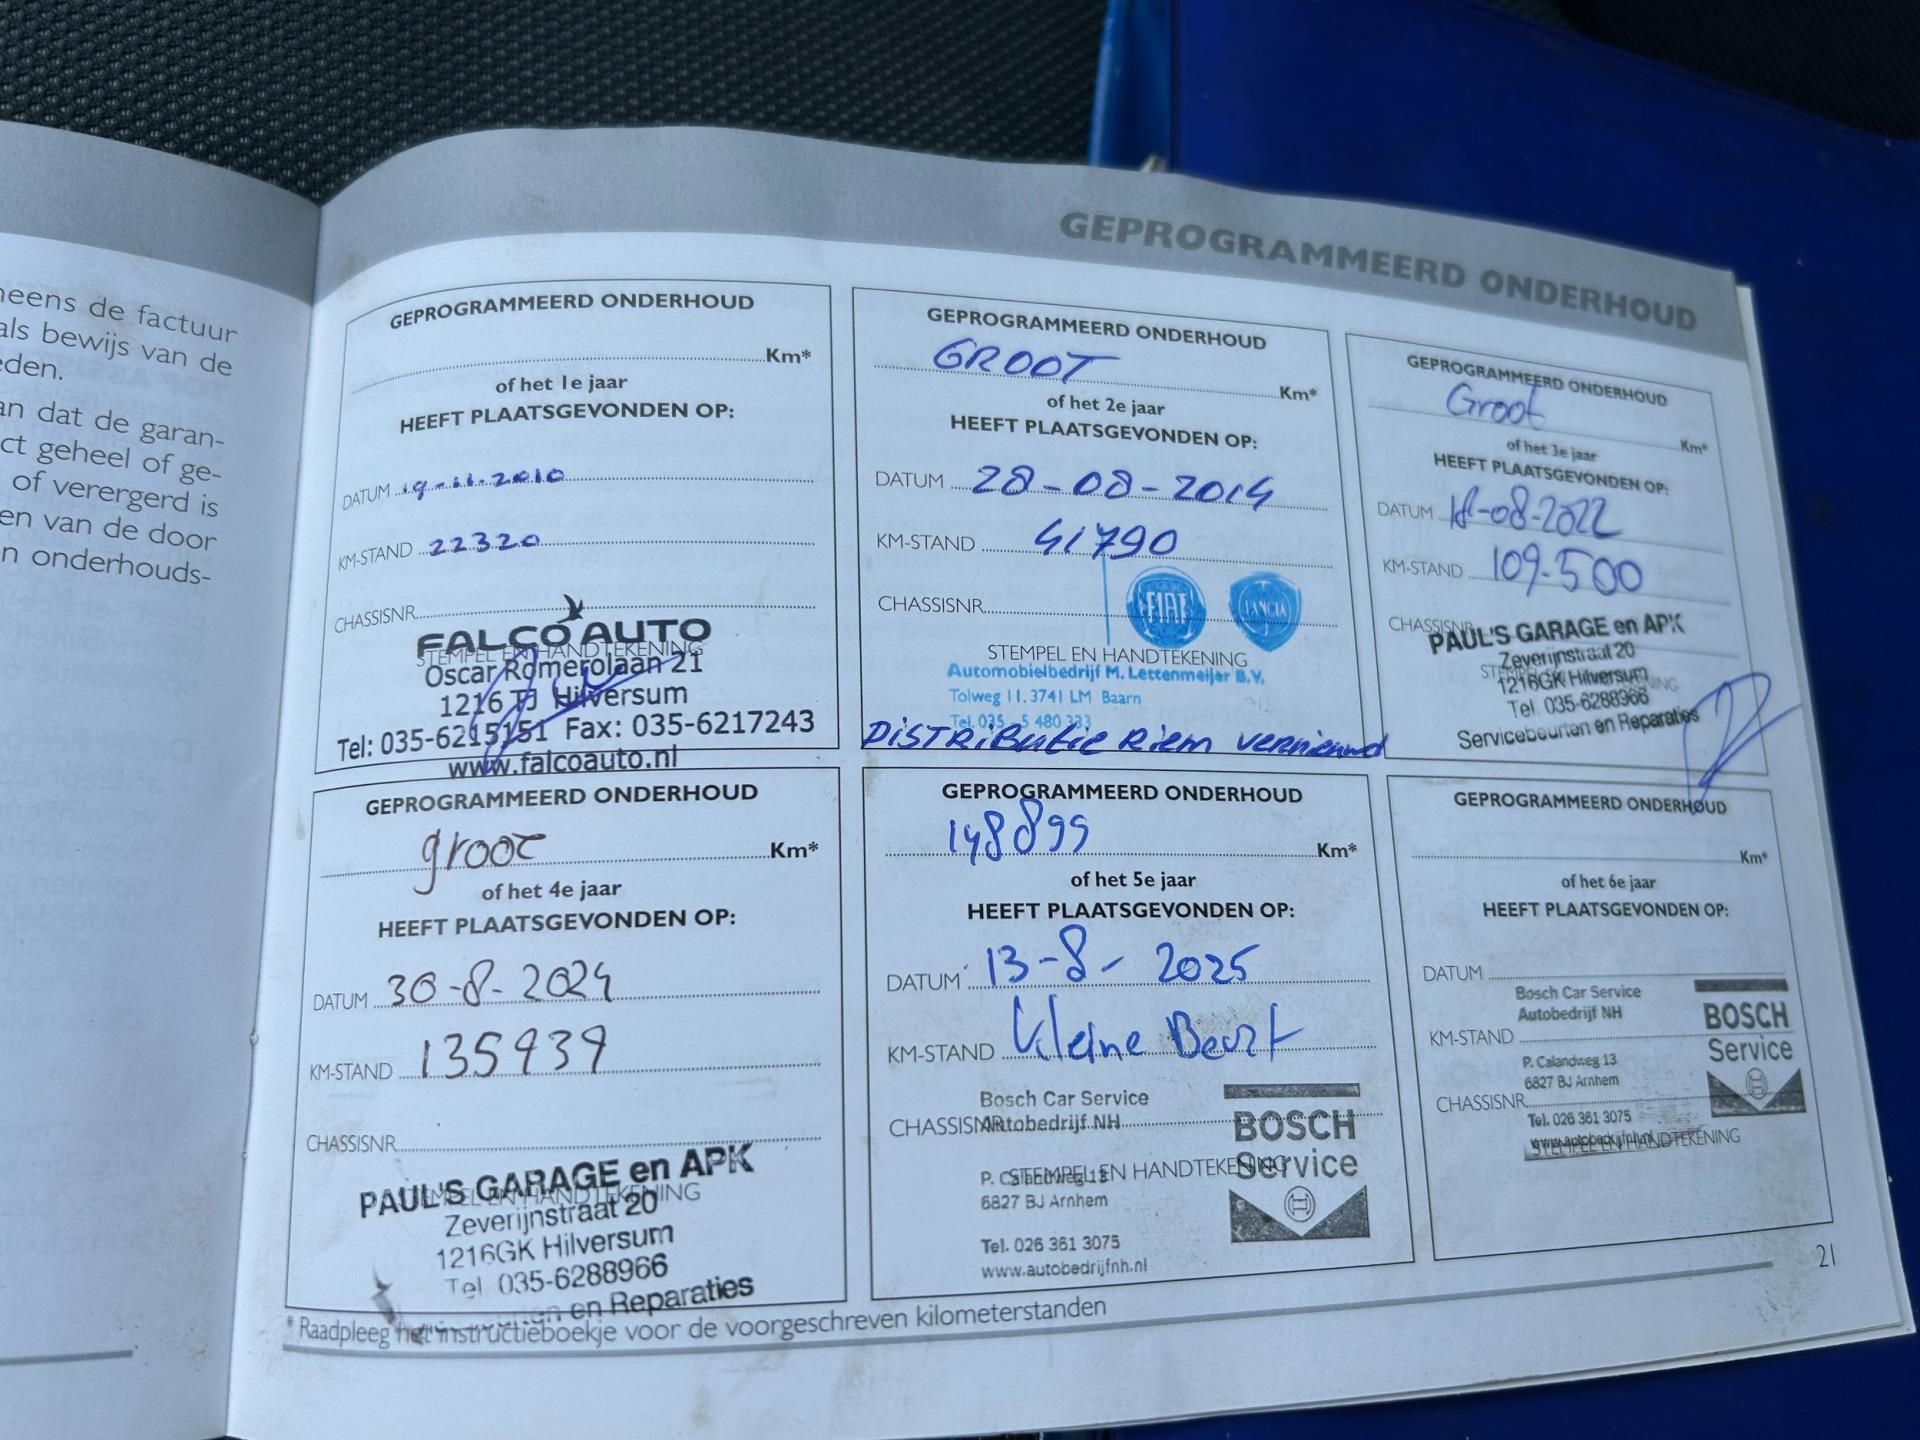 GEPROGRAMMEERD ONDERHOUD
neens de factuur
als bewijs van de
eden.
an dat de garan-
ct geheel of ge-
of verergerd is
en van de door
n onderhouds-
GEPROGRAMMEERD ONDERHOUD
Km*
of het 1e jaar
HEEFT PLAATSGEVONDEN OP:
DATUM 19-11-2010
KM-STAND 22320
CHASSISNR.
FALCO AUTO
STEMPEL EN HANDTEKENING
Oscar Romerolaan 21
1216 TJ Hilversum
Tel: 035-6215151 Fax: 035-6217243
www.falcoauto.nl
GEPROGRAMMEERD ONDERHOUD
GROOT Km*
of het 2e jaar
HEEFT PLAATSGEVONDEN OP:
DATUM 28-08-2014
KM-STAND 41790
CHASSISNR.
FIAT LANCIA
STEMPEL EN HANDTEKENING
Automobielbedrijf M. Lettenmeijer B.V.
Tolweg 11, 3741 LM Baarn
Tel. 035 - 5 480 333
DISTRIBUTIE RIEM VERNIEUWD
GEPROGRAMMEERD ONDERHOUD
Groot Km*
of het 3e jaar
HEEFT PLAATSGEVONDEN OP:
DATUM 18-08-2022
KM-STAND 109.500
CHASSISNR.
PAUL'S GARAGE en APK
Zeverijnstraat 20
STEMPEL EN HANDTEKENING
1216GK Hilversum
Tel. 035-6288966
Servicebeurten en Reparaties
GEPROGRAMMEERD ONDERHOUD
groot Km*
of het 4e jaar
HEEFT PLAATSGEVONDEN OP:
DATUM 30-8-2024
KM-STAND 135939
CHASSISNR.
PAUL'S GARAGE en APK
STEMPEL EN HANDTEKENING
Zeverijnstraat 20
1216GK Hilversum
Tel. 035-6288966
en Reparaties
GEPROGRAMMEERD ONDERHOUD
148899 Km*
of het 5e jaar
HEEFT PLAATSGEVONDEN OP:
DATUM 13-8-2025
KM-STAND Kleine Beurt
Bosch Car Service
CHASSISNR. Autobedrijf NH
BOSCH
Service
STEMPEL EN HANDTEKENING
P. Calandweg 13
6827 BJ Arnhem
Tel. 026 361 3075
www.autobedrijfnh.nl
GEPROGRAMMEERD ONDERHOUD
Km*
of het 6e jaar
HEEFT PLAATSGEVONDEN OP:
DATUM
Bosch Car Service
Autobedrijf NH
BOSCH
Service
KM-STAND
P. Calandweg 13
6827 BJ Arnhem
CHASSISNR.
Tel. 026 361 3075
www.autobedrijfnh.nl
STEMPEL EN HANDTEKENING
* Raadpleeg het instructieboekje voor de voorgeschreven kilometerstanden
21